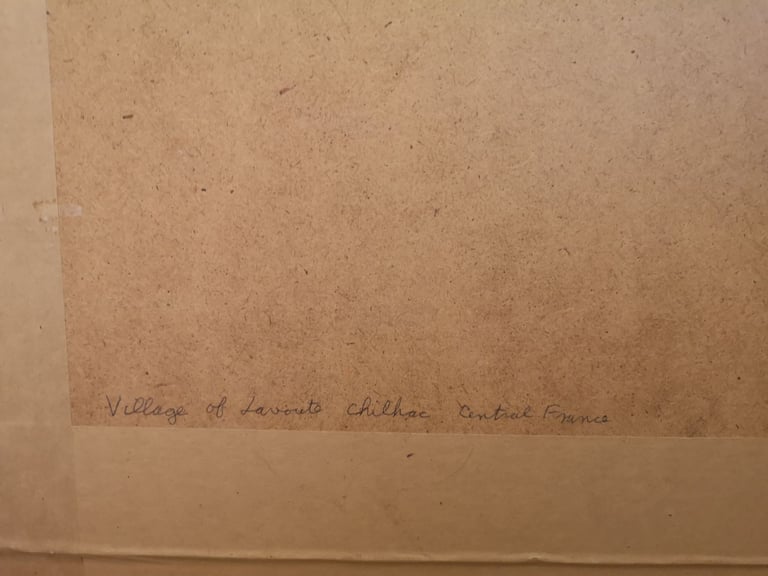 Village of Lavoute Chilhac Central France